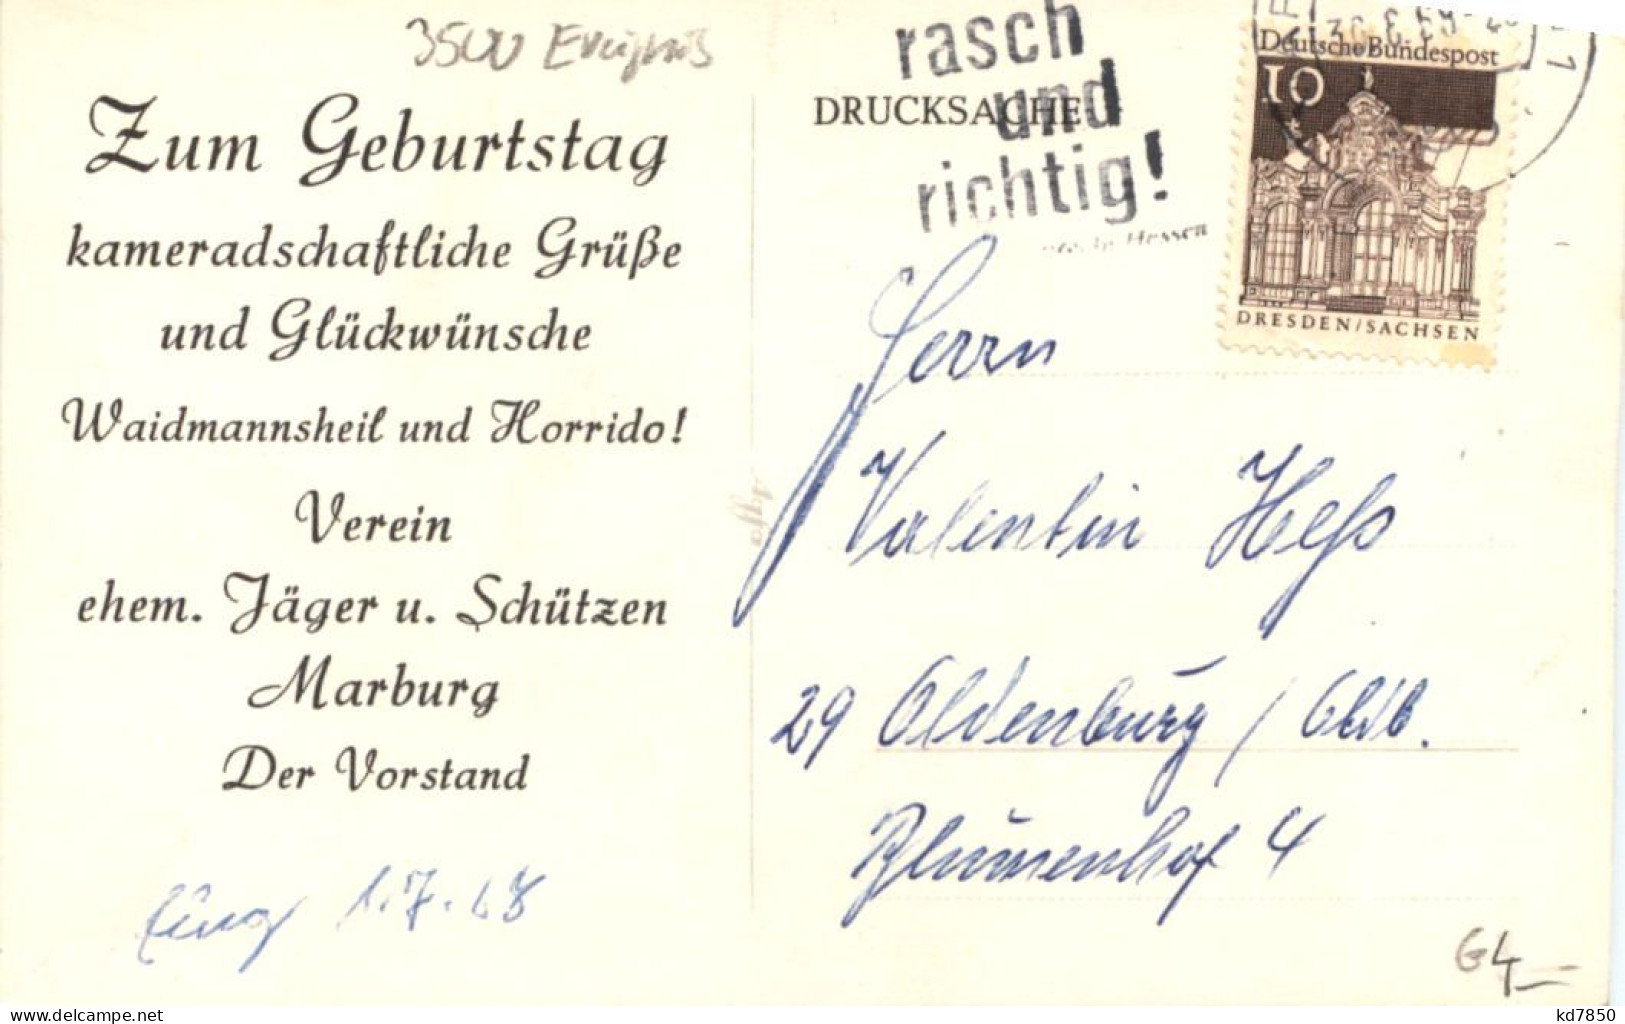 3500
Zum Geburtstag
kameradschaftliche Grüße
und Glückwünsche
Waidmannsheil und Horrido!
Verein
ehem. Jäger u. Schützen
Marburg
Der Vorstand
1.7.68
rasch
und
richtig!
DRUCKSACHE
Hessen
Deutsche Bundespost
10
DRESDEN/SACHSEN
Herrn
Valentin Heß
29 Oldenburg / Oldb.
Blumenhof 4
G4
www.delcampe.net
kd7850